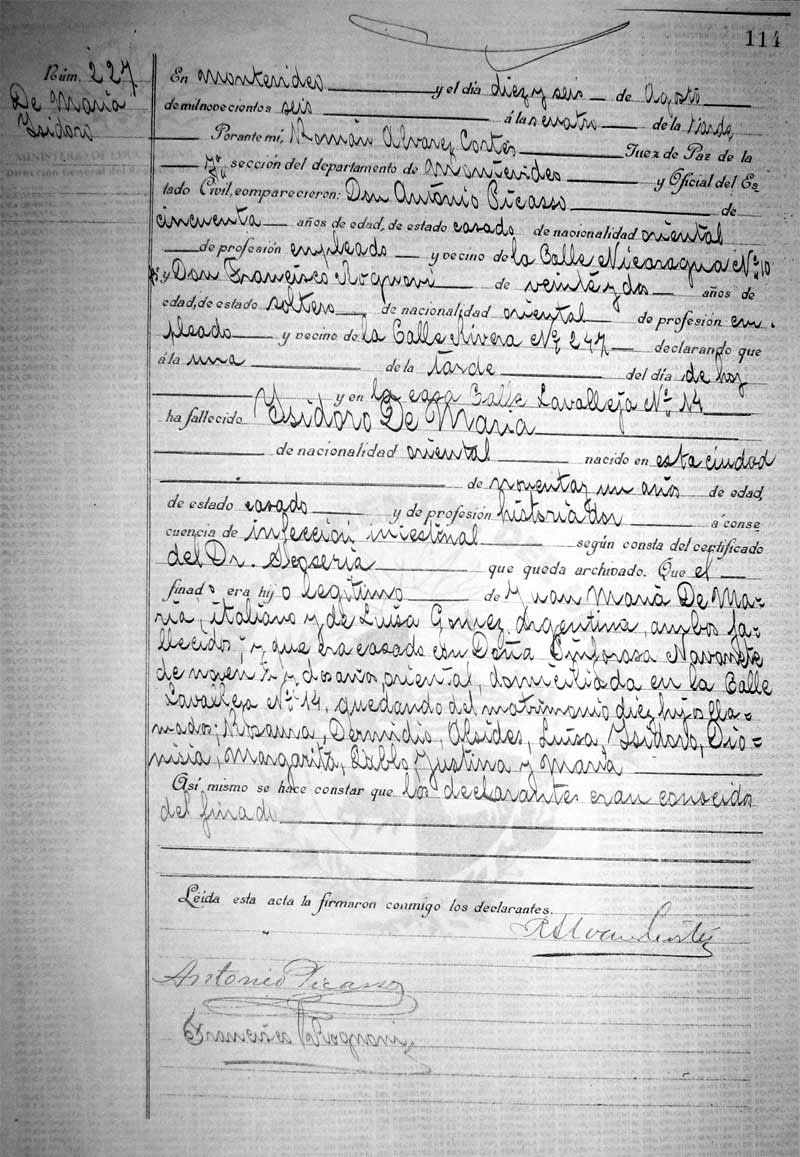 114
Núm. 227
De María
Ysidoro
En Montevideo y el día diez y seis de Agosto
de mil novecientos seis á las cuatro de la tarde,
Por ante mí, Román Alvarez Cortés Juez de Paz de la
7a. sección del departamento de Montevideo y Oficial del Es
tado Civil, comparecieron: Don Antonio Picasso de
cincuenta años de edad, de estado casado de nacionalidad oriental
de profesión empleado y vecino de la Calle Nicaragua No. 10
y Don Francisco Rognoni de veinte y dos años de
edad, de estado soltero de nacionalidad oriental de profesión em-
pleado y vecino de la Calle Rivera No. 247 declarando que
á la una de la tarde del día de hoy
y en la casa Calle Lavalleja No. 14
ha fallecido Ysidoro De María
de nacionalidad oriental nacido en esta ciudad
de noventa y un años de edad,
de estado casado y de profesión historiador a conse
cuencia de infección intestinal según consta del certificado
del Dr. que queda archivado. Que el
finado era hijo legitimo de Juan María De Ma-
ría, italiano y de Luisa Gomez, Argentina, ambos fa-
llecidos; y que era casado con Doña Sinforosa Navarrete
de noventa y dos años, oriental, domiciliada en la Calle
Lavalleja No. 14, quedando del matrimonio diez hijos lla-
mados; Rosaura, Dermidio, Alcides, Luisa, Ysidoro, Dio-
nisia, Margarita, Pablo, Justina y María
Así mismo se hace constar que los declarantes eran conocidos
del finado
Leída esta acta la firmaron conmigo los declarantes.
Antonio Picasso
Francisco Rognoni